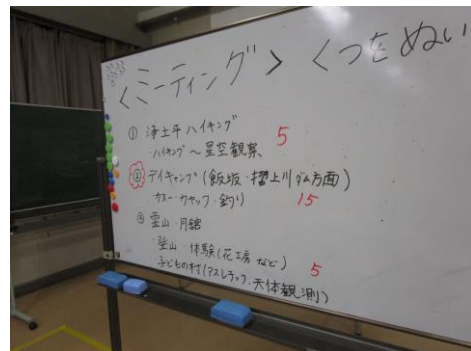 <ミーティング> くつをぬい
① 浄土平ハイキング 5
・ハイキング～星空観察
② デイキャンプ(飯坂・摺上川ダム方面)
カヌー・カヤック・釣り 15
③ 霊山・月舘
登山・体験(花工房など)
子どもの村(アスレチック、天体観測) 5